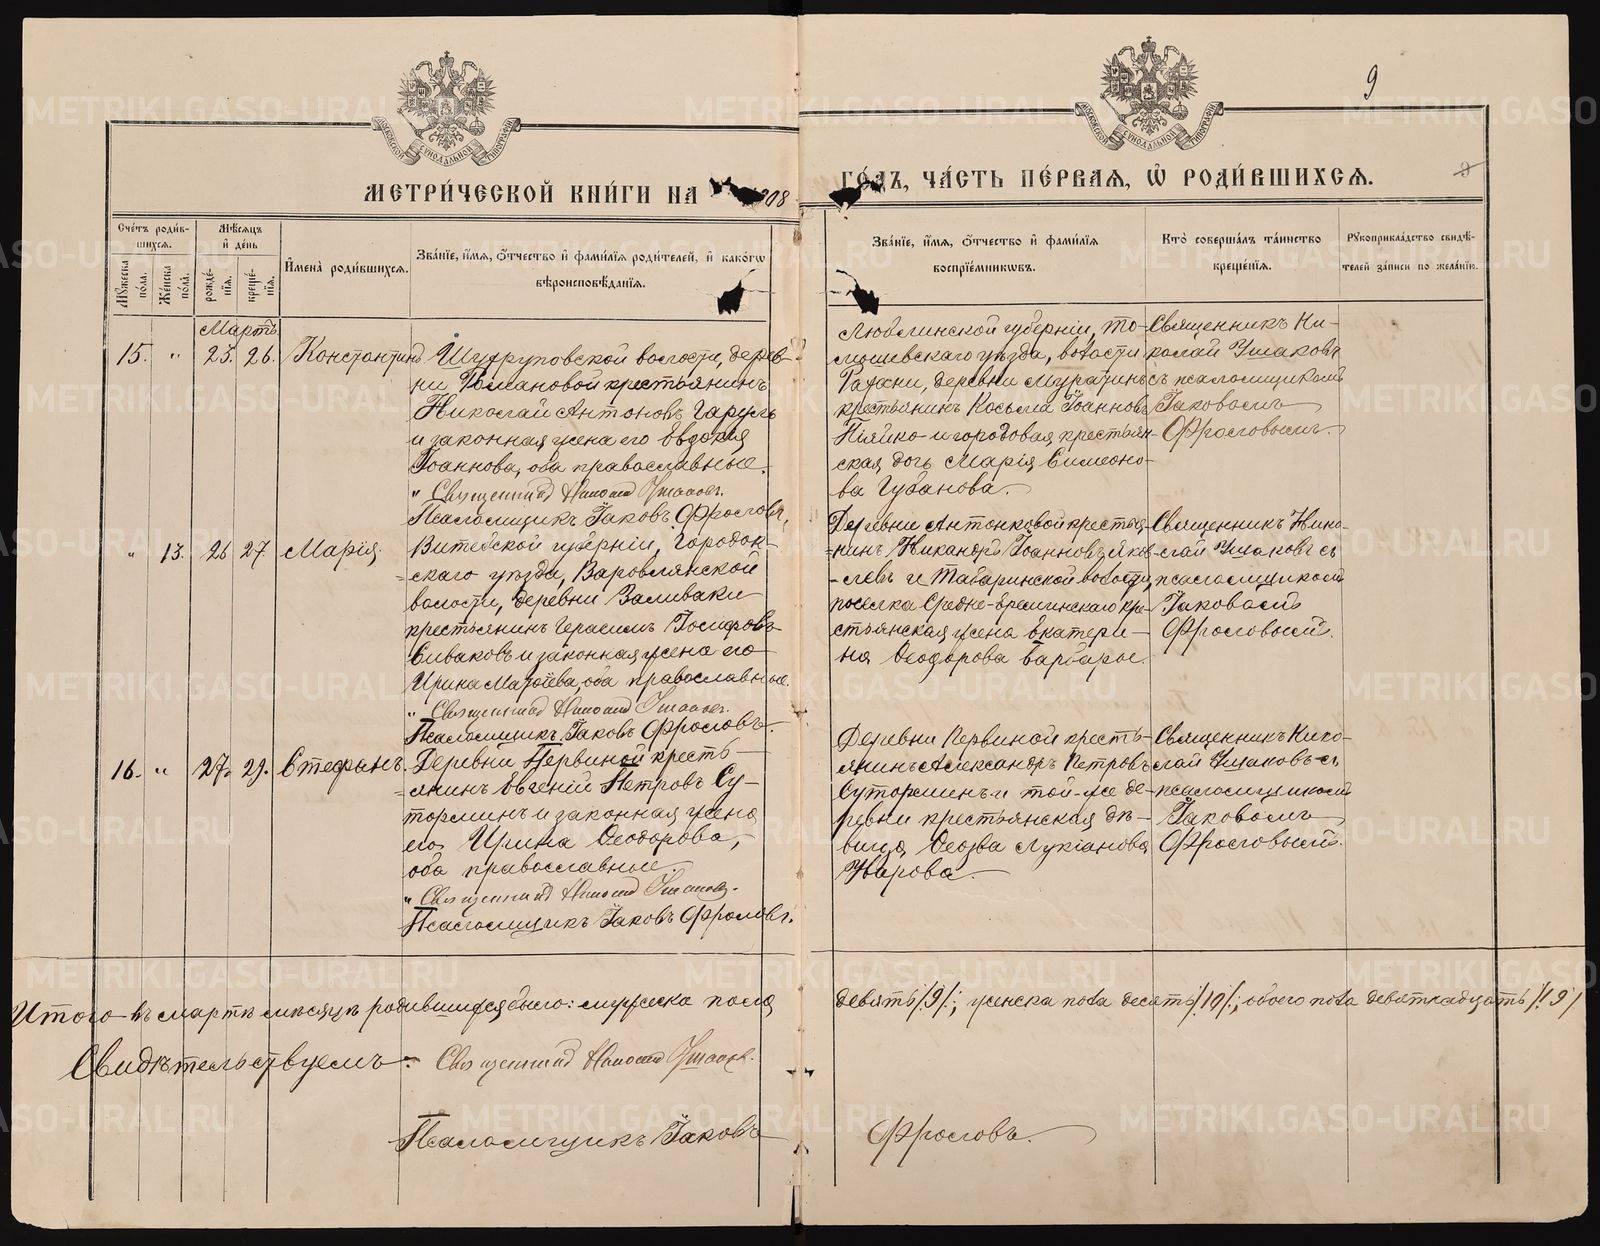 9
МЕТРИЧЕСКОЙ КНИГИ НА 1908 ГОДЪ, ЧАСТЬ ПЕРВАЯ, Ѿ РОДИВШИХСЯ.
Счетъ родив-
шихся.
Мужеска
пола.
Женска
пола.
Мѣсяцъ
и день
рожде-
нія.
креще-
нія.
Имена родившихся.
Званіе, имя, отчество и фамилія родителей, и какогѡ
вѣроисповѣданія.
Званіе, имя, отчество и фамилія
воспріемникѡвъ.
Кто совершалъ таинство
крещенія.
Рукоприкладство свидѣ-
телей записи по желанію.
Мартъ
15. " 25. 26. Константинъ
Шуруповской волости, дерев-
ни Романовой крестьянинъ
Николай Антоновъ
и законная жена его Евдокія
Іоаннова, оба православные.
" Священникъ Николай Ушаковъ.
Псаломщикъ Іаковъ Фроловъ.
Люблинской губерніи, То-
мошевскаго уѣзда, волости
деревни
крестьянинъ Косьма Іоанновъ
и городовая крестьян-
ская дочь Марія Симеоно-
ва Губанова.
Священникъ Ни-
колай Ушаковъ
съ псаломщикомъ
Іаковомъ
Фроловымъ.
" 13. 26 27. Марія
Витебской губерніи, Городок-
скаго уѣзда, Варовлянской
волости, деревни Заливаки
крестьянинъ Герасимъ Іосифовъ
Сиваковъ и законная жена его
Ирина Матѳіева, оба православные.
" Священникъ Николай Ушаковъ.
Псаломщикъ Іаковъ Фроловъ.
Деревни Антонковой крестья-
=нинъ Никандръ Іоанновъ Яков-
-левъ и Табаринской волости,
поселка Средне- кре-
стьянская жена Екатери-
на Ѳеодорова
Священникъ Нико-
лай Ушаковъ съ
псаломщикомъ
Іаковомъ
Фроловымъ.
16. " 27. 29. Стефанъ.
Деревни Первиной кресть-
=янинъ Евгеній Петровъ Су-
торминъ и законная жена
его Ирина Ѳеодорова,
оба православные.
" Священникъ Николай Ушаковъ.
Псаломщикъ Іаковъ Фроловъ.
Деревни Первиной кресть-
янинъ Александръ Петровъ
Суторминъ и той-же де-
ревни крестьянская дѣ-
вица Лукіанова
Уварова.
Священникъ Нико-
лай Ушаковъ съ
псаломщикомъ
Іаковомъ
Фроловымъ.
Итого въ мартѣ мѣсяцѣ родившихся было: мужеска пола девять /9/; женска пола десять /10/; обоего пола девятнадцать /19/
Свидѣтельствуемъ: Священникъ Николай Ушаковъ.
Псаломщикъ Іаковъ Фроловъ.
METRIKI.GASO-URAL.RU